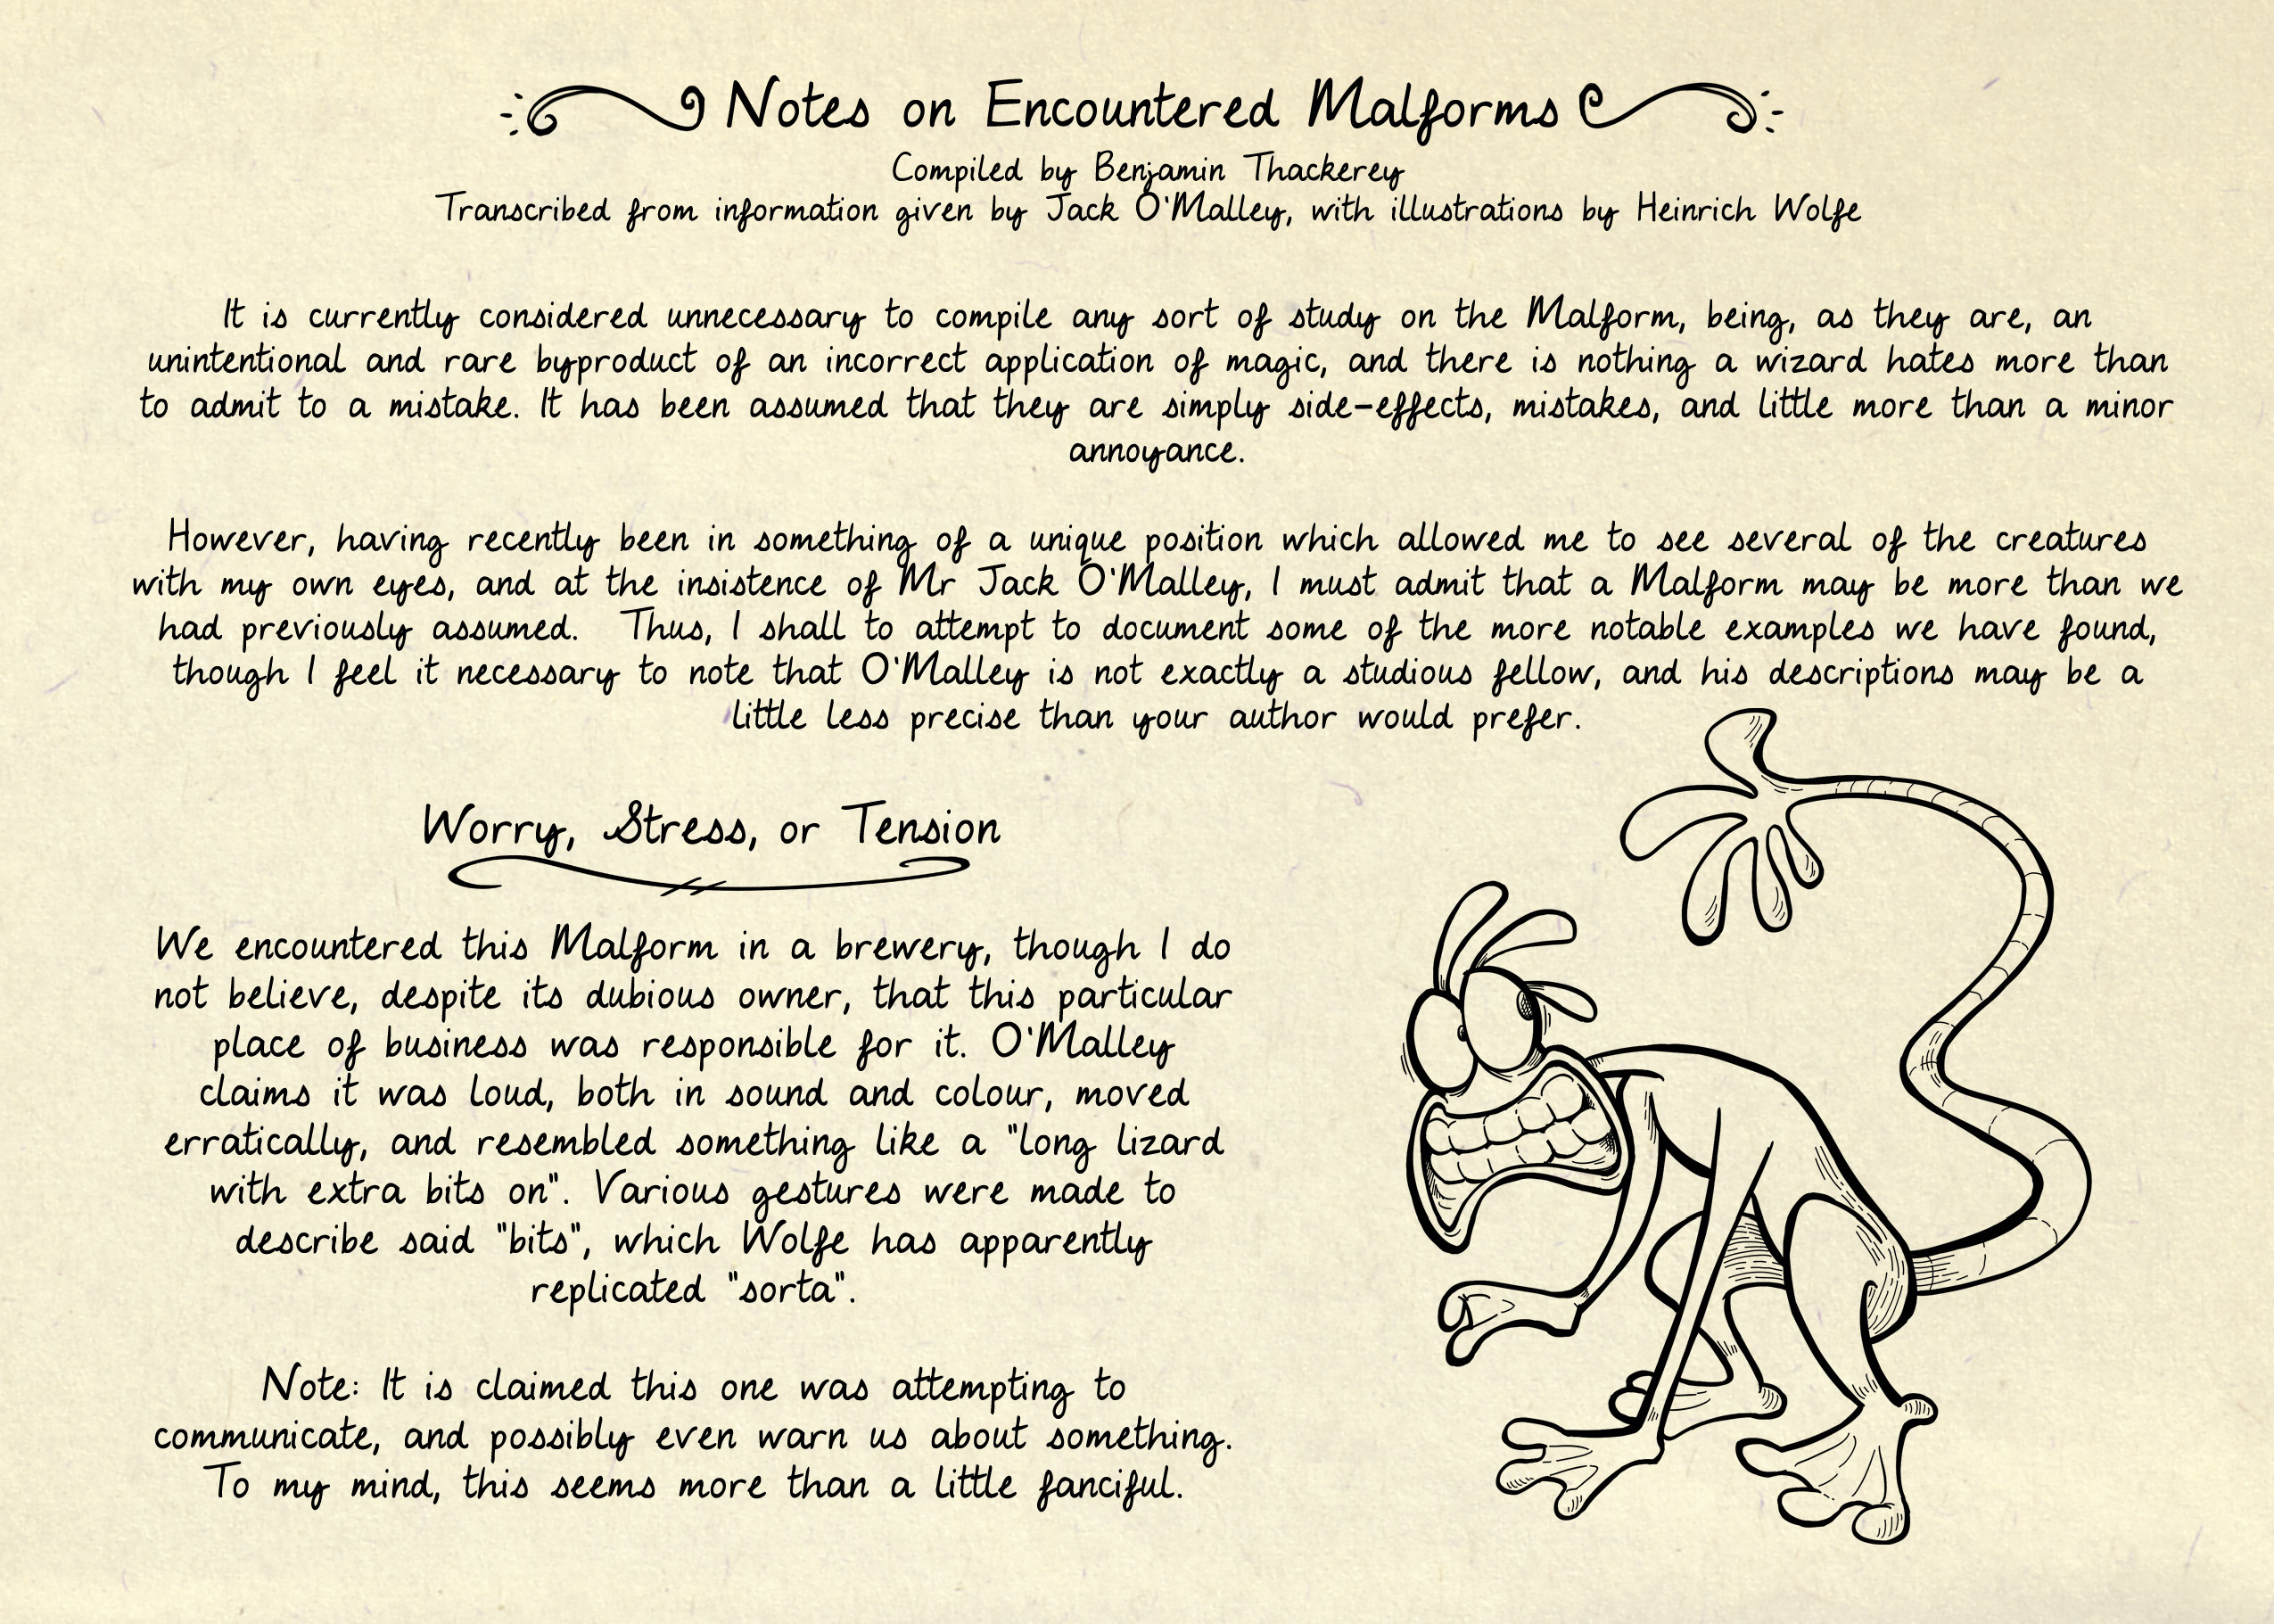 Notes on Encountered Malforms
Compiled by Benjamin Thackerey
Transcribed from information given by Jack O'Malley, with illustrations by Heinrich Wolfe
It is currently considered unnecessary to compile any sort of study on the Malform, being, as they are, an
unintentional and rare byproduct of an incorrect application of magic, and there is nothing a wizard hates more than
to admit to a mistake. It has been assumed that they are simply side-effects, mistakes, and little more than a minor
annoyance.
However, having recently been in something of a unique position which allowed me to see several of the creatures
with my own eyes, and at the insistence of Mr Jack O'Malley, I must admit that a Malform may be more than we
had previously assumed. Thus, I shall to attempt to document some of the more notable examples we have found,
though I feel it necessary to note that O'Malley is not exactly a studious fellow, and his descriptions may be a
little less precise than your author would prefer.
Worry, Stress, or Tension
We encountered this Malform in a brewery, though I do
not believe, despite its dubious owner, that this particular
place of business was responsible for it. O'Malley
claims it was loud, both in sound and colour, moved
erratically, and resembled something like a "long lizard
with extra bits on". Various gestures were made to
describe said "bits", which Wolfe has apparently
replicated "sorta".
Note: It is claimed this one was attempting to
communicate, and possibly even warn us about something.
To my mind, this seems more than a little fanciful.